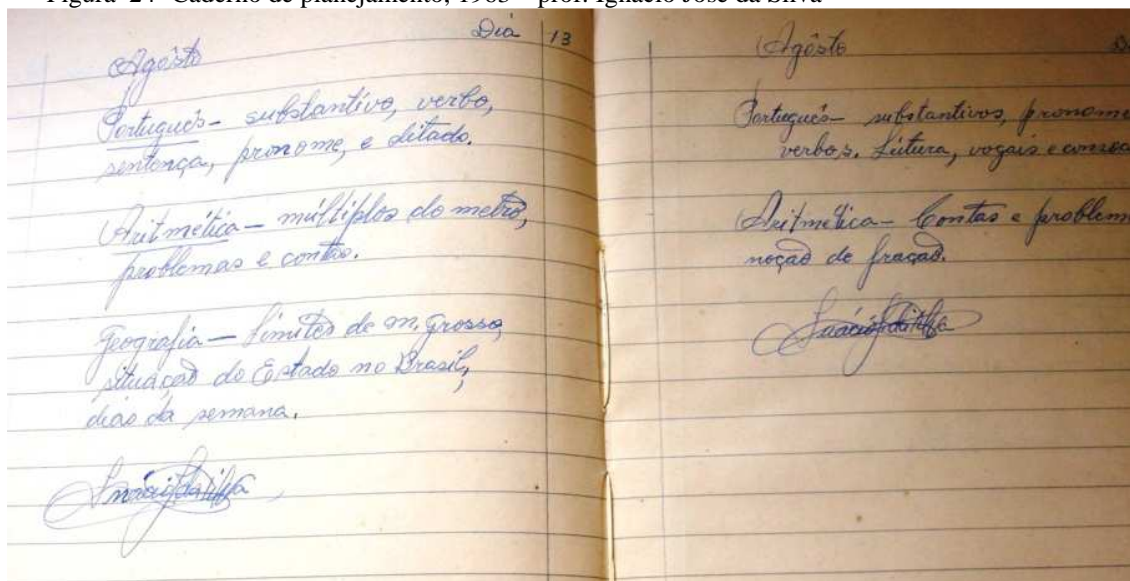 Figura 24- Caderno de planejamento, 1963 – prof. Ignácio José da Silva
Agôsto Dia 13
Português - substantivo, verbo,
sentença, pronome, e ditado.
Aritmética - múltiplos do metro,
problemas e contas.
Geografia - Limites de M. Grosso,
situaçaõ do Estado no Brasil,
dias da semana.
Agôsto
Português - substantivos, pronome
verbos. Leitura, vogais e
Aritmética - Contas e
noçaõ de fraçaõ.